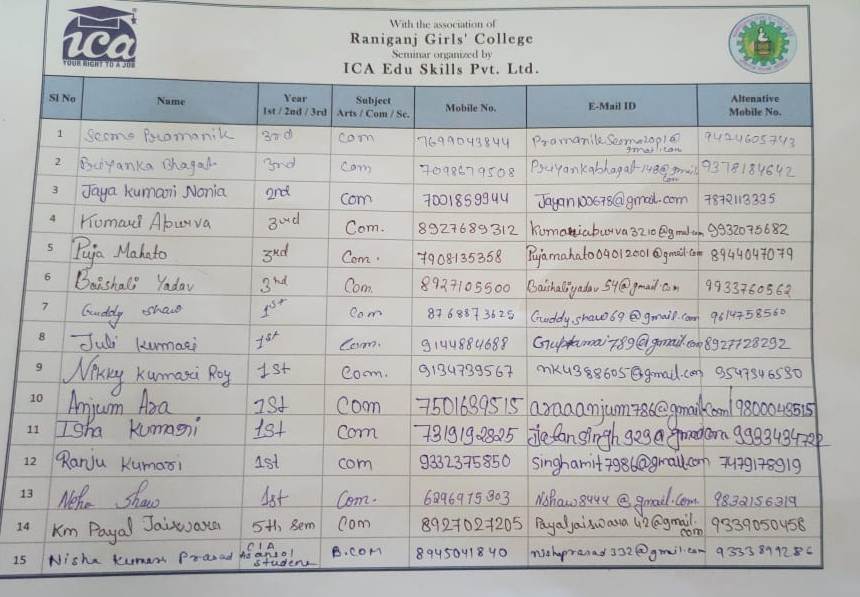 ica
YOUR RIGHT TO A JOB
With the association of
Raniganj Girls' College
Seminar organized by
ICA Edu Skills Pvt. Ltd.
Sl No Name Year 1st / 2nd / 3rd Subject Arts / Com / Sc. Mobile No. E-Mail ID Altenative Mobile No.
1 Seema Pramanik 3rd Com 7699043844 9424605743
2 Priyanka Bhagat 3rd Com 7098679508 Priyankabhagat148@gmail.com 9378184642
3 Jaya Kumari Nonia 2nd Com 7001859944 Jayan100678@gmail.com 7872113335
4 Kumari Apurva 3rd Com. 8927689312 Kumariapurva3210@gmail.com 9932075682
5 Puja Mahato 3rd Com. 7908135358 Pujamahato04012001@gmail.com 8944047079
6 Baishali Yadav 3rd Com. 8927105500 Baishaliyadav54@gmail.com 9933760562
7 Guddy Shaw 1st Com 8768873625 Guddy.shaw69@gmail.com 9614758560
8 Juli Kumari 1st Com. 9144884688 8927728292
9 Nikky Kumari Roy 1st Com. 9134739567 nk4388605@gmail.com 9547346530
10 Anjum Ara 1st Com 7501639515 araaanjum786@gmail.com 9800049515
11 Isha Kumari 1st Com 7319192825 9933434722
12 Ranju Kumari 1st com 9332375850 Singhamit7986@gmail.com 7479178919
13 Neha Shaw 1st Com. 6296975303 Nshaw8444@gmail.com 9832156319
14 Km Payal Jaiswara 5th Sem Com 8927027205 Payaljaiswara42@gmail.com 9339050458
15 Nisha Kumari Prasad CIA Asansol Student B.COM 8945041840 nishaprasad332@gmail.com 9333899286